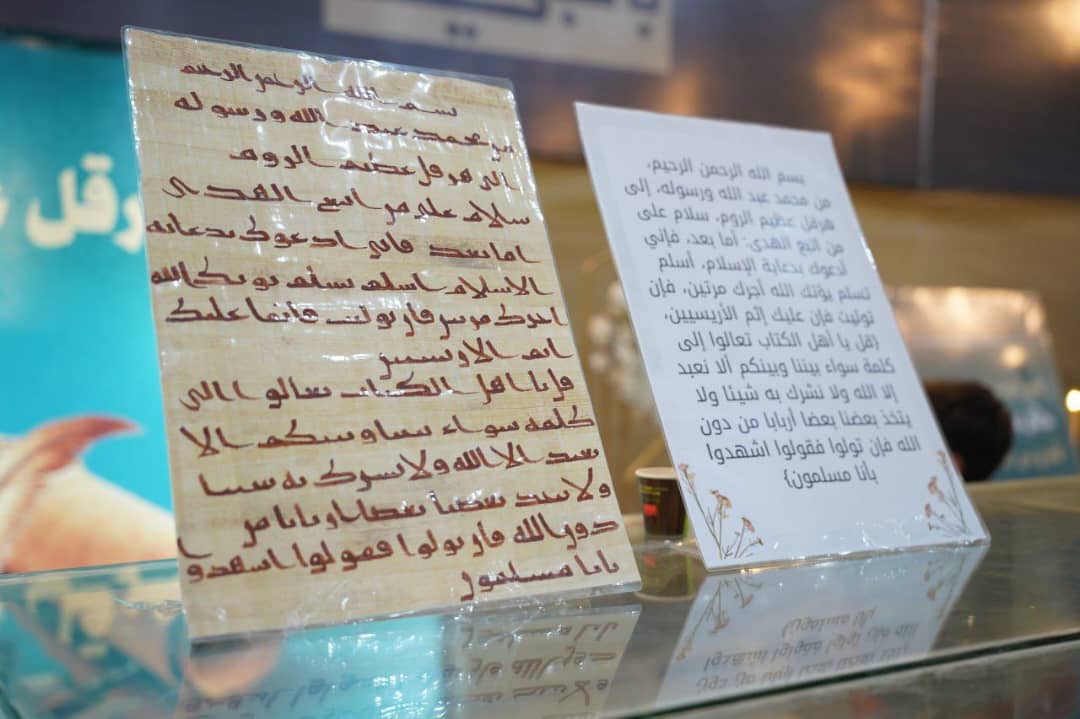 سم الله الرحمن الرحيم
من محمد عبد الله ورسوله
الى هرقل عظيم الروم
سلام على من اتبع الهدى
اما بعد فانى ادعوك بدعايه
الاسلام اسلم تسلم يوتك الله
اجرك مرتين فان توليت فانما عليك
اثم الاريسين
قل يا اهل الكتاب تعالوا الى
كلمه سواء بيننا وبينكم الا
نعبد الا الله ولا نشرك به شيئا
ولا يتخذ بعضنا بعضا اربابا من
دون الله فان تولوا فقولوا اشهدوا
بانا مسلمون
بسم الله الرحمن الرحيم،
من محمد عبد الله ورسوله، إلى
هرقل عظيم الروم، سلام على
من اتبع الهدى: أما بعد، فإني
أدعوك بدعاية الإسلام، أسلم
تسلم يؤتك الله أجرك مرتين، فإن
توليت فإن عليك إثم الأريسيين،
{قل يا أهل الكتاب تعالوا إلى
كلمة سواء بيننا وبينكم ألا نعبد
إلا الله ولا نشرك به شيئا ولا
يتخذ بعضنا بعضا أربابا من دون
الله فإن تولوا فقولوا اشهدوا
بأنا مسلمون}